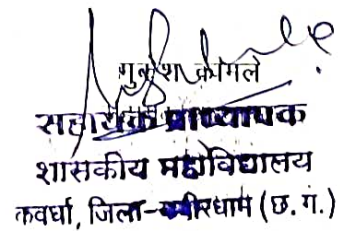 मुकेश कामले
सहायक प्राध्यापक
शासकीय महाविद्यालय
कवर्धा, जिला-कबीरधाम (छ. ग.)